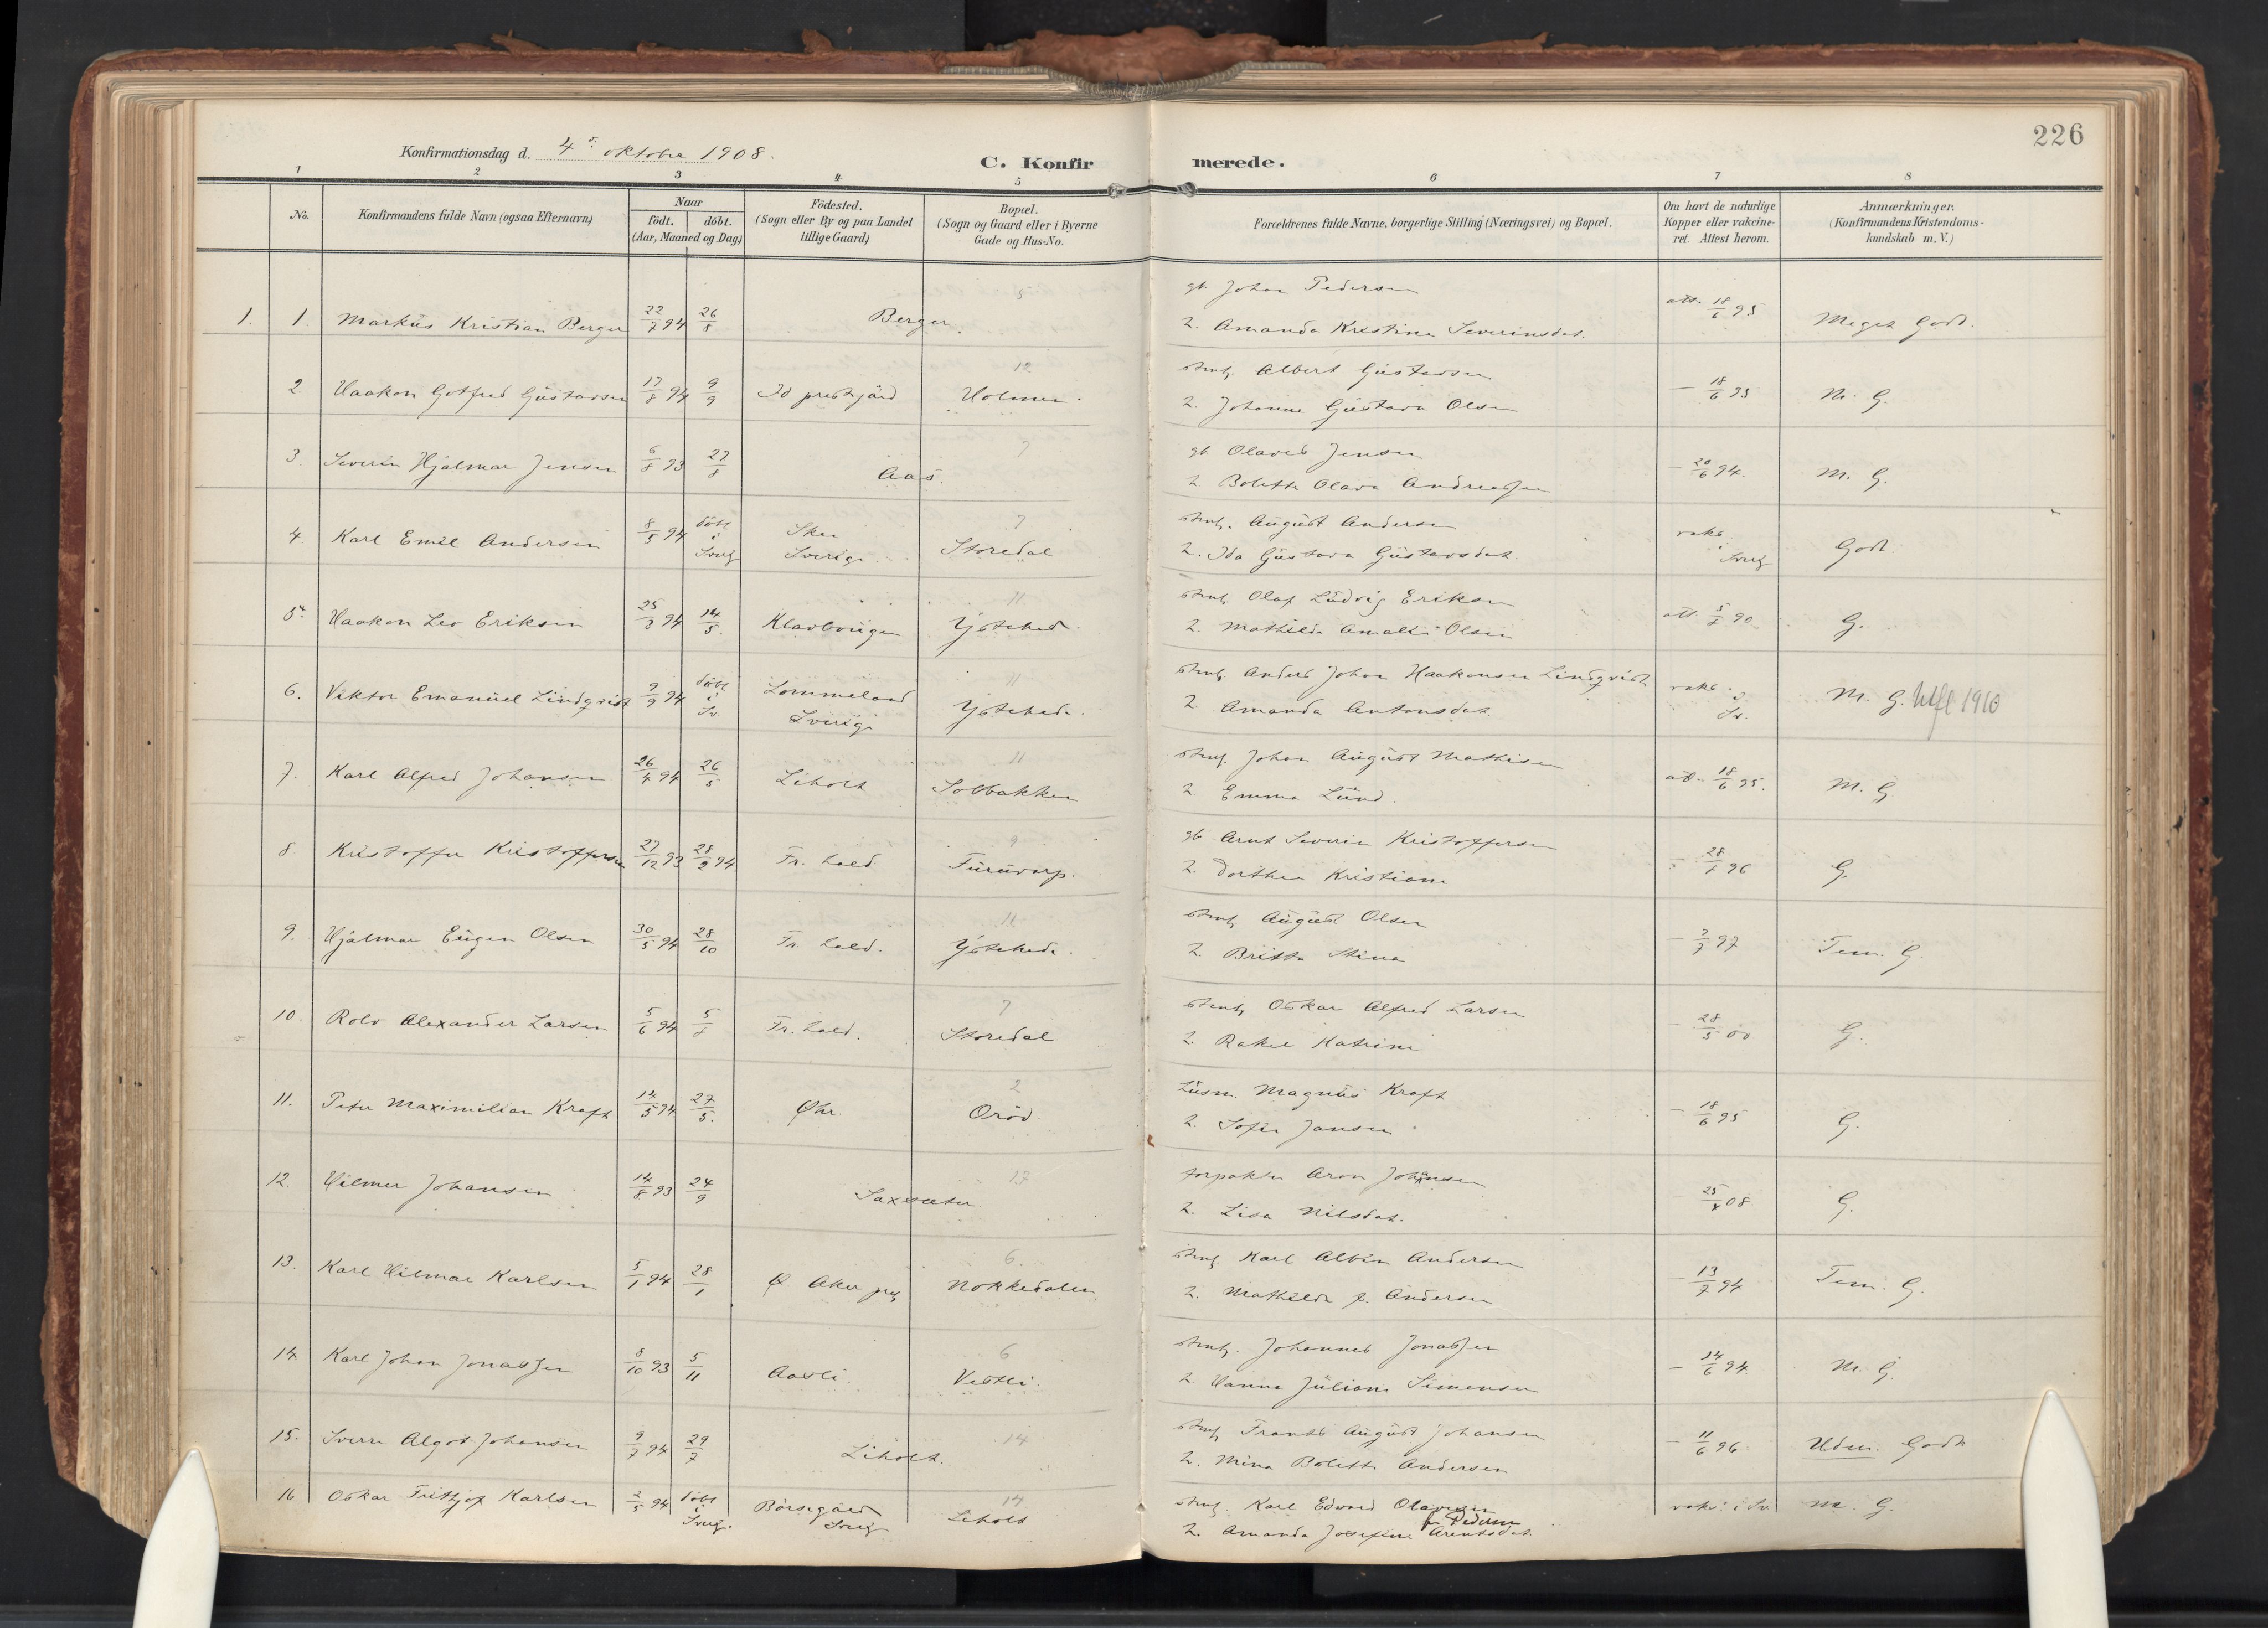 226
Konfirmationsdag d. 4 oktober 1908.
C. Konfirmerede.
1 2 3 4 5 6 7 8
No.
Konfirmandens fulde Navn (ogsaa Efternavn)
Naar
födt. döbt.
(Aar, Maaned og Dag)
Födested.
(Sogn eller By og paa Landet
tillige Gaard)
Bopæl.
(Sogn og Gaard eller i Byerne
Gade og Hus-No.
Forældrenes fulde Navne, borgerlige Stilling (Næringsvei) og Bopæl.
Om havt de naturlige
Kopper eller vakcine-
ret. Attest herom.
Anmærkninger.
(Konfirmandens Kristendoms-
kundskab m. V.)
gb. Johan Pedersen
1. 1. Markus Kristian Berger 22/7 94 26/8 Berger att. 18/6 95 Meget Godt.
2. Amanda Kristine Severinsdat.
12
Albert Gustavsen
2 Haakon Gotfred Gustavsen 17/8 94 9/9 Id prestegjæld Holmen. — 18/6 95 M. G.
2. Johanne Gustava Olsen
7
gb Olaves Jensen
3. Severin Hjalmar Jensen 6/8 93 27/8 Aas. — 20/6 94. M. G.
2. Bolette Olava Andreasen
7
August Andersen
4. Karl Emil Andersen 8/5 94 döbt i Sverig Skee Sverige Storedal vaks. i Sverig Godt
2. Ida Gustava Gustavsdat.
11
Olaf Ludvig Eriksen
5. Haakon Leo Eriksen 25/3 94 14/5. att. G.
2. Mathilde Amalie Olsen
11
Anders Johan Haakonsen Lindqvist
6. Viktor Emanuel Lindqvist 9/9 94 döbt i Sv. Lommeland Sverige vaks. i Sv. M. G. Utfl 1910
2. Amanda Antonsdat.
11
Johan August Mathisen
7. Karl Alfred Johansen 26/4 94 26/5 Liholt Solbakken att. 18/6 95. M. G
2 Emma Lund.
9
gb Arnt Severin Kristoffersen
8 Kristoffer Kristoffersen 27/12 93 28/2 94 Fr. hald Furuvarp. G.
2. Dorthea Kristiane
11
August Olsen
9. Hjalmar Eugen Olsen 30/5 94 28/10 Fr. hald. — 97 Tem. G.
2. Britta Stina
7
Oskar Alfred Larsen
10. Rolv Alexander Larsen 5/6 94 5/8 Fr. hald. Storedal — 28/5 00 G.
2. Rakel Katrine
2
Lusm. Magnus Kraft
11. Peter Maximilian Kraft 14/5 94 27/5. Röd. — 18/6 95 G.
2. Sofie Jansen
17
forpakter Aron Johansen
12. Hilmer Johansen 14/8 93 24/9 Saxesæter 08. G.
2. Lisa Nilsdat.
6
Karl Albin Andersen
13. Karl Hilmar Karlsen 5/1 94 28/1 Ø Aker Nokkedalen — 13/7 94 Tem. G.
2. Mathilde f. Andersen
6
Johannes Jonassen
14 Karl Johan Jonassen 8/10 93 5/11 Aasli. Vestli. — 14/6 94. M. G.
2. Hanna Juliane Simensen
14
Frants August Johansen
15. Sverre Algot Johansen 9/7 94 29/7 Liholt. — 11/6 96 Udm. Godt
2. Mina Bolette Andersen
14
Karl Edvard Olavesen
16 Oskar Frithjof Karlsen 2/5 94 döbt i Sverig. Börsegård Sverig Liholt vaks. i Sv M. G.
2. Amanda Josefine Arentsdat.
f. Pedersen